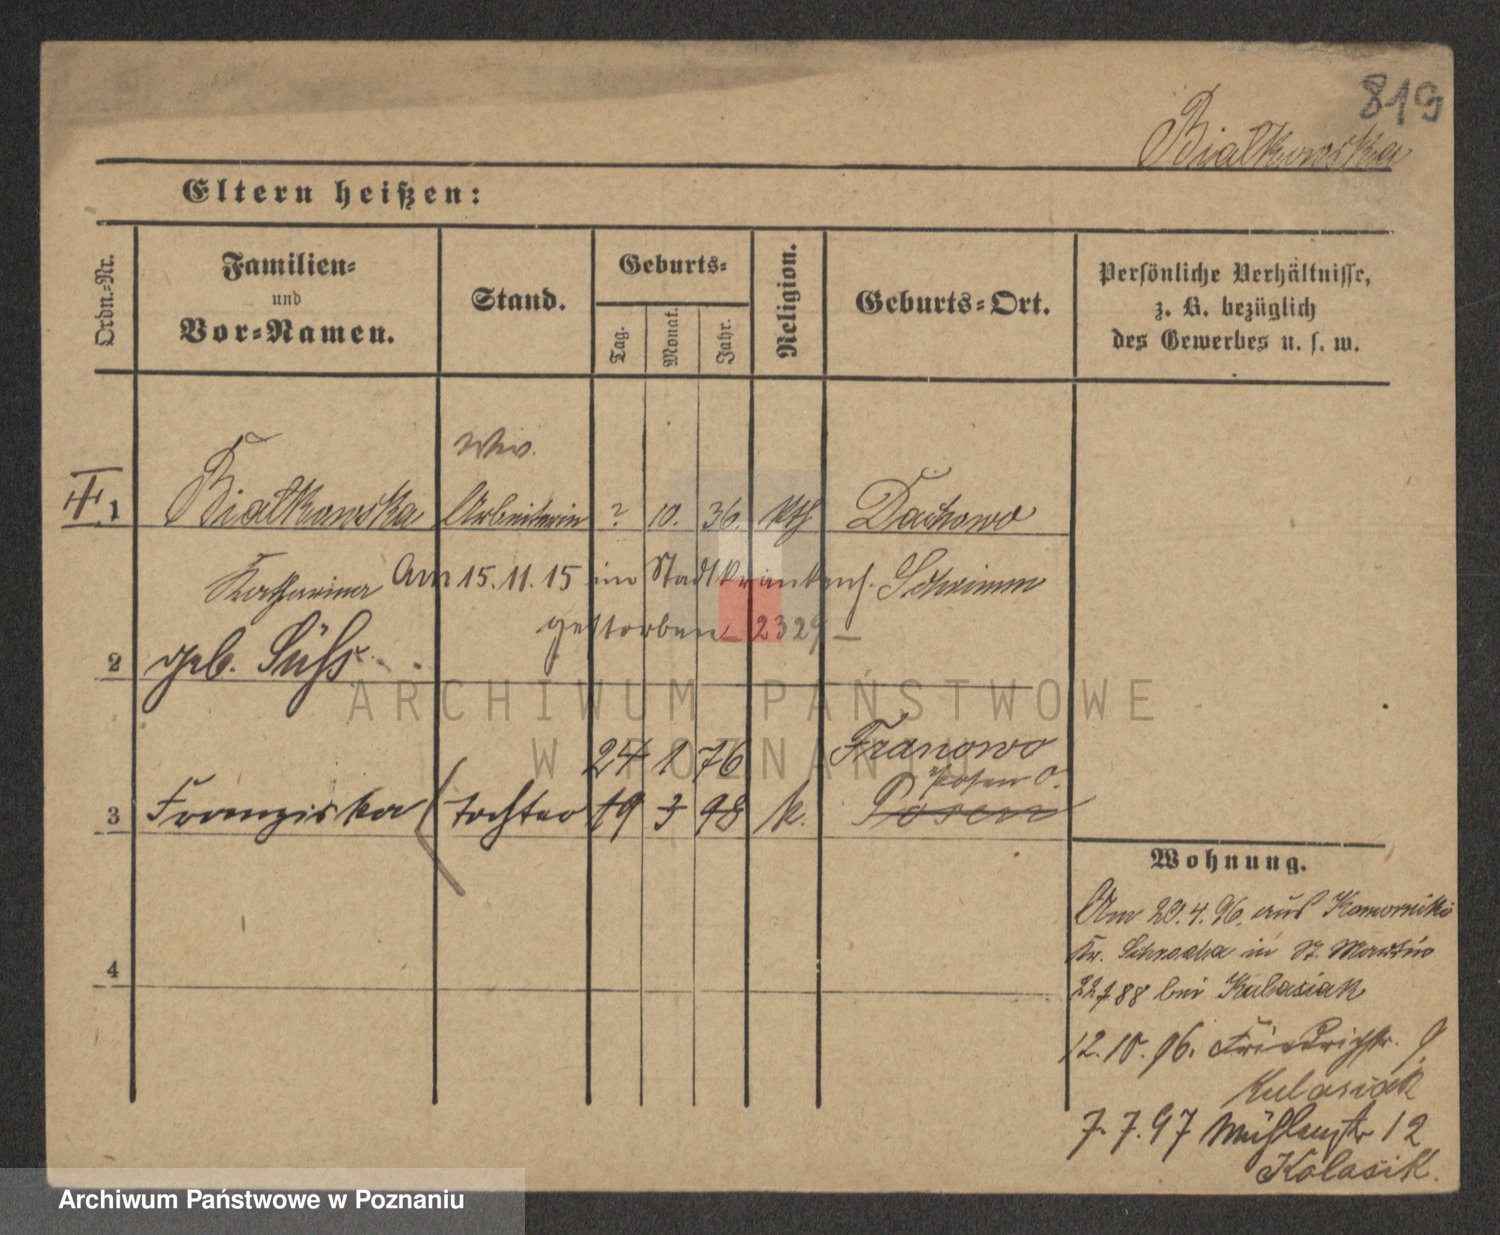 819
Białkowska
Eltern heißen:
Ordn.-Nr.
Familien-
und
Vor-Namen.
Stand.
Geburts-
Tag.
Monat.
Jahr.
Religion.
Geburts-Ort.
Persönliche Verhältnisse,
z. B. bezüglich
des Gewerbes u. s. w.
Wwe.
1 Białkowska Arbeiterin ? 10. 36. kth Dachowo
Katharina Am 15.11.15 im Stadtkrankenh. Schrimm
gestorben 2329 —
2 geb. Süß
ARCHIWUM PAŃSTWOWE
W POZNANIU
24 1 76 Franowo
Posen O.
3 Franziska Tochter 19 3 98 k. Posen
Wohnung.
Am 20.4.96. aus Komorniki
Kr. Schroda in St. Martin
bei Kubasiak
4
12.10.96. Friedrichstr. 9
Kubasiak
7.7.97 Mühlenstr 12
Kolasik.
Archiwum Państwowe w Poznaniu